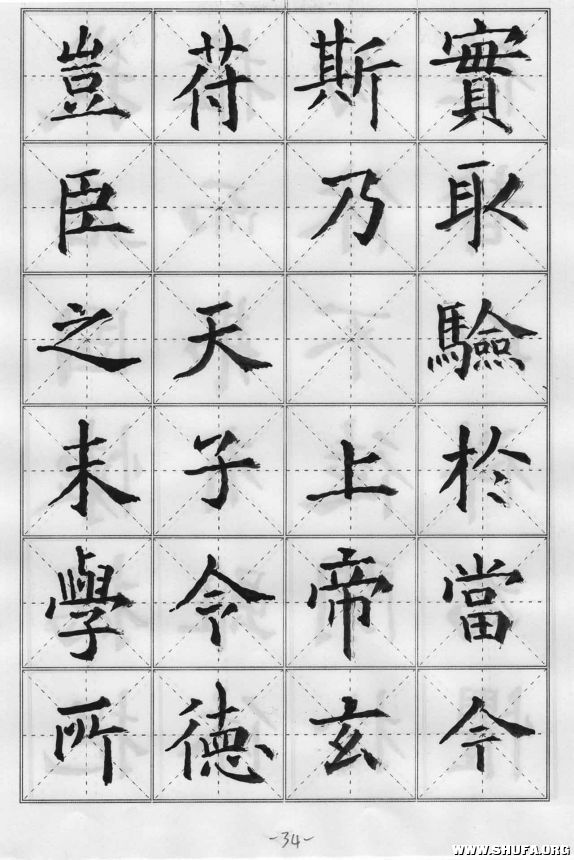 實取驗於當今
斯乃上帝玄
苻天子令德
豈臣之末學所
-34-
WWW.SHUFA.ORG